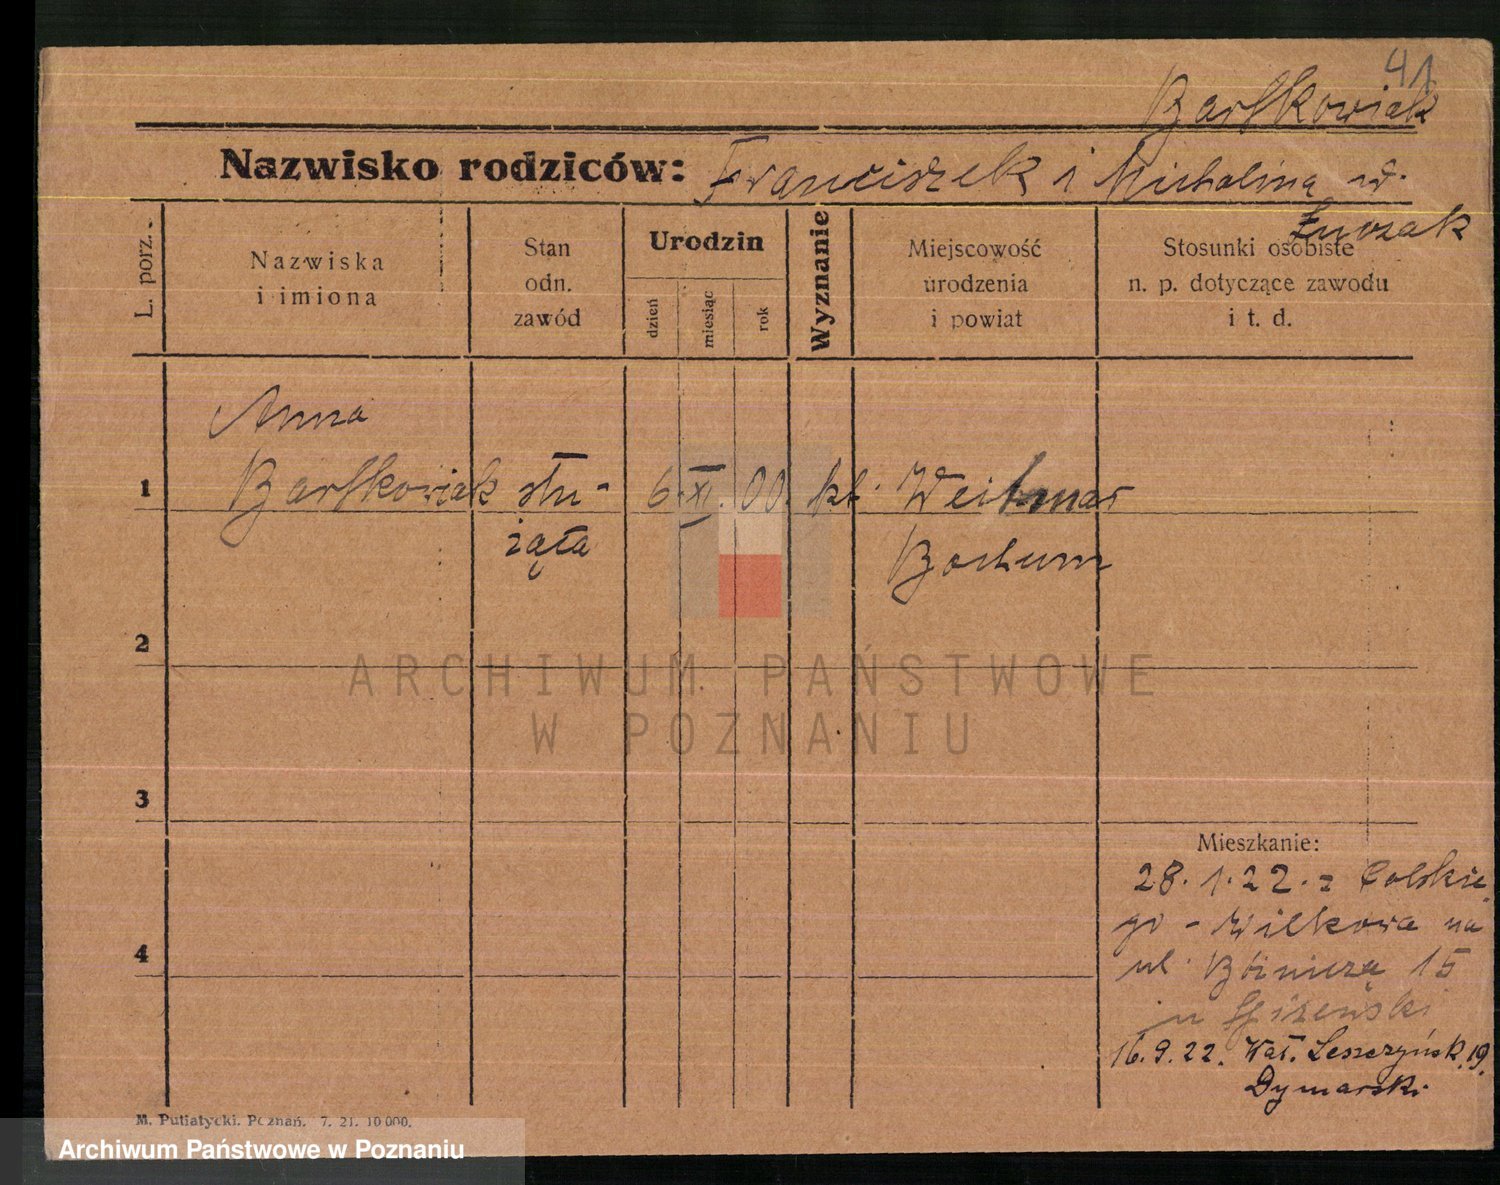 41
Bartkowiak
Nazwisko rodziców: Franciszek i Michalina
L. porz.
Nazwiska
i imiona
Stan
odn.
zawód
Urodzin
dzień
miesiąc
rok
Wyznanie
Miejscowość
urodzenia
i powiat
Stosunki osobiste
n. p. dotyczące zawodu
i t. d.
Anna
1 Bartkowiak słu- 6. XI. 00. kt. Weitmar
żąca
Bochum
2
3
4
Mieszkanie:
28. 1. 22. z Polskie
go - Wilkowa na
ul. 15
16. 9. 22. Wał. Leszczyńsk. 19.
Dymarski
M. Putiatycki. Poznań. 7. 21. 10 000.
ARCHIWUM PAŃSTWOWE
W POZNANIU
Archiwum Państwowe w Poznaniu